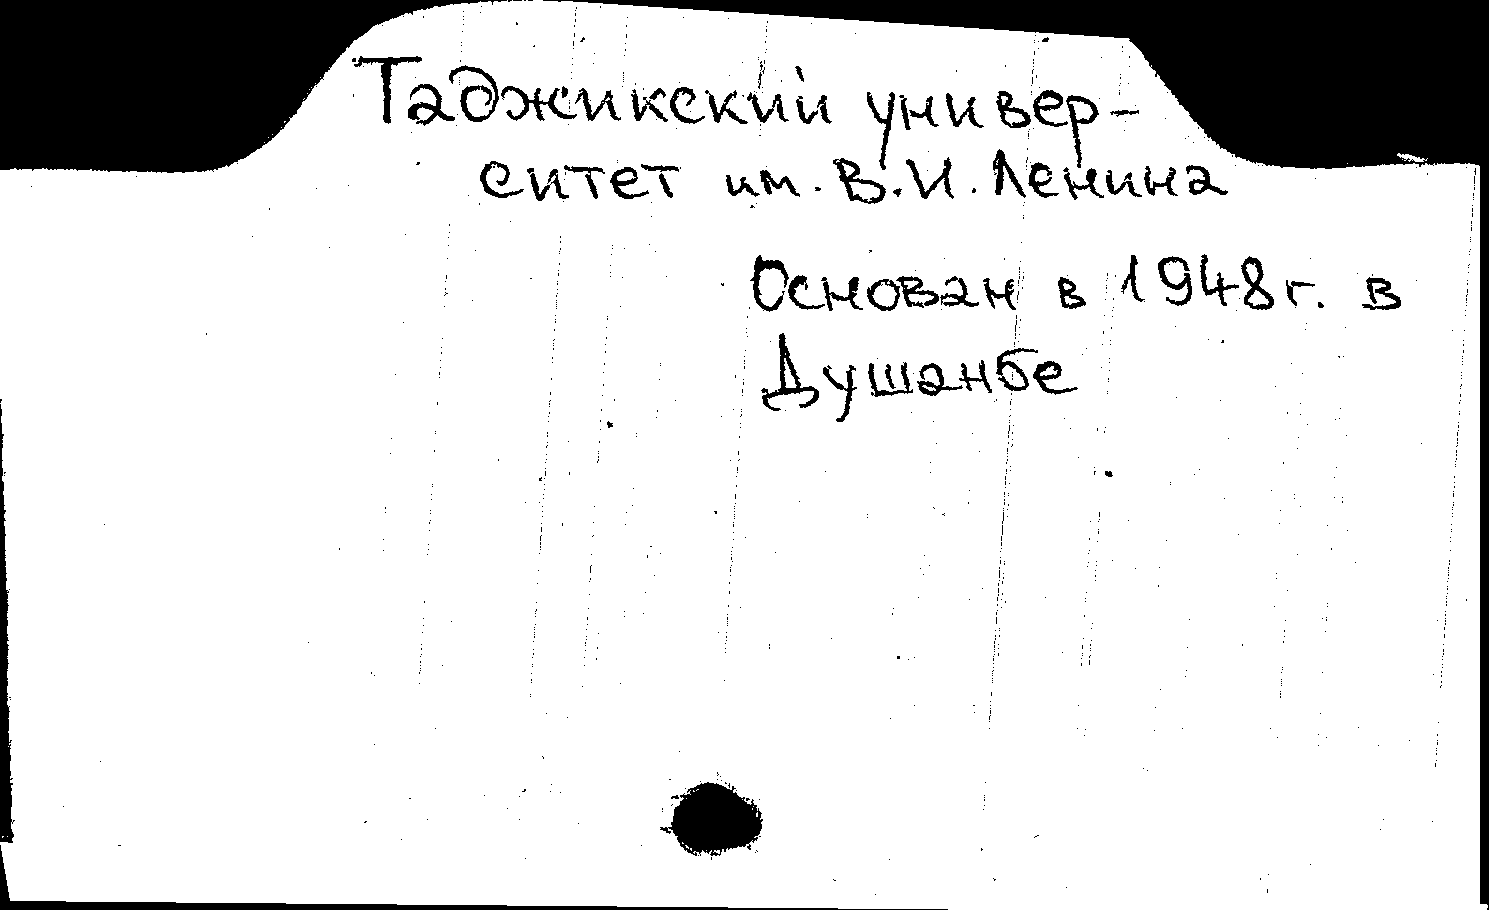 Таджикский универ-
ситет им. В.И. Ленина
Основан в 1948 г. в
Душанбе